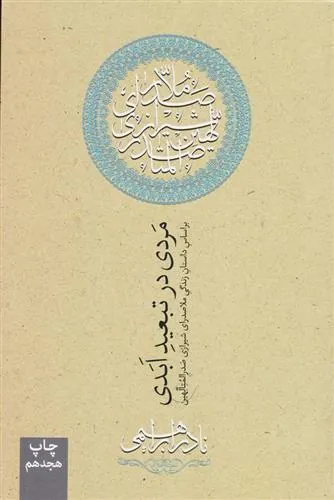 ملاصدرای شیرازی
صدرالمتألهین
مردی در تبعید ابدی
براساس داستان زندگی ملاصدرای شیرازی صدرالمتألهین
نادر ابراهیمی
چاپ
هجدهم